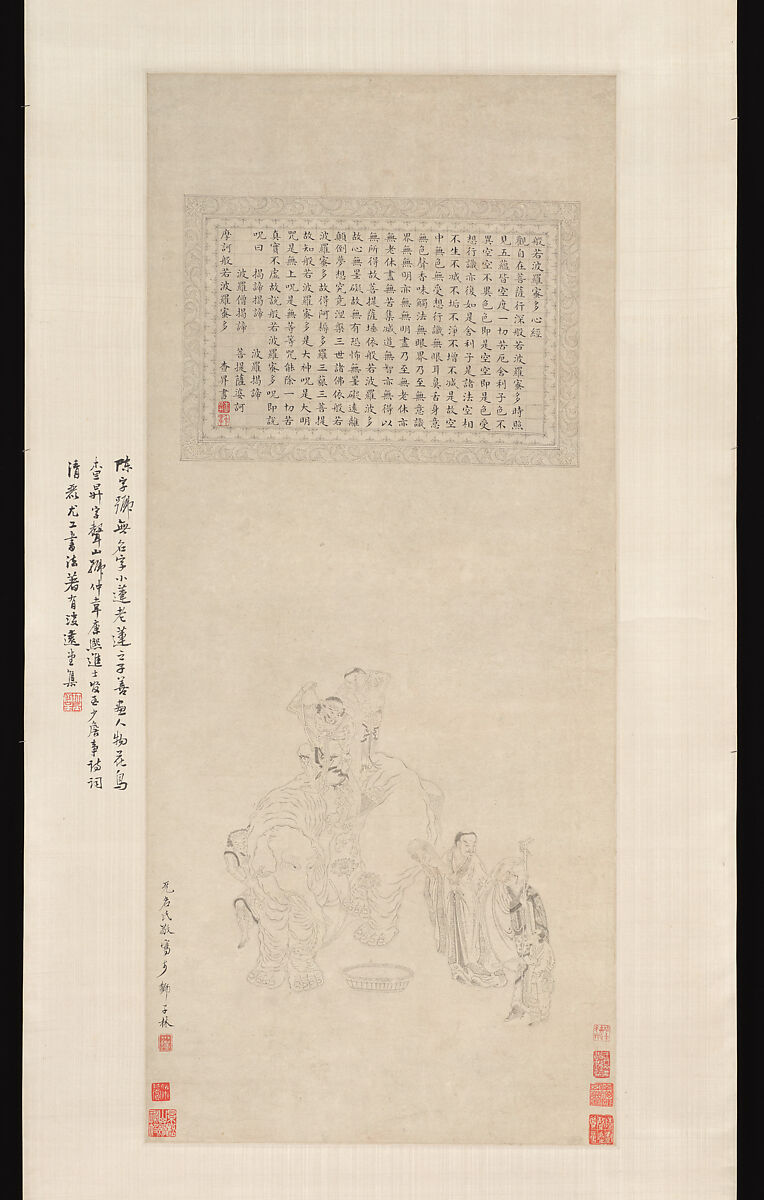 般若波羅蜜多心經
觀自在菩薩行深般若波羅蜜多時照
見五蘊皆空度一切苦厄舍利子色不
異空空不異色色即是空空即是色受
想行識亦復如是舍利子是諸法空相
不生不滅不垢不淨不增不減是故空
中無色無受想行識無眼耳鼻舌身意
無色聲香味觸法無眼界乃至無意識
界無無明亦無無明盡乃至無老死亦
無老死盡無苦集滅道無智亦無得以
無所得故菩提薩埵依般若波羅蜜多
故心無罣礙故無有恐怖無罣礙遠離
顛倒夢想究竟涅槃三世諸佛依般若
波羅蜜多故得阿耨多羅三藐三菩提
故知般若波羅蜜多是大神咒是大明
咒是無上咒是無等等咒能除一切苦
真實不虛故說般若波羅蜜多咒即說
咒曰 揭諦揭諦 波羅揭諦
波羅僧揭諦 菩提薩婆訶
摩訶般若波羅蜜多 查昇書
无名氏敬寫于獅子林
陳字號無名字小蓮老蓮之子善畫人物花鳥
查昇字聲山號仲韋康熙進士官至少詹事詩詞
清麗尤工書法著有澹遠堂集